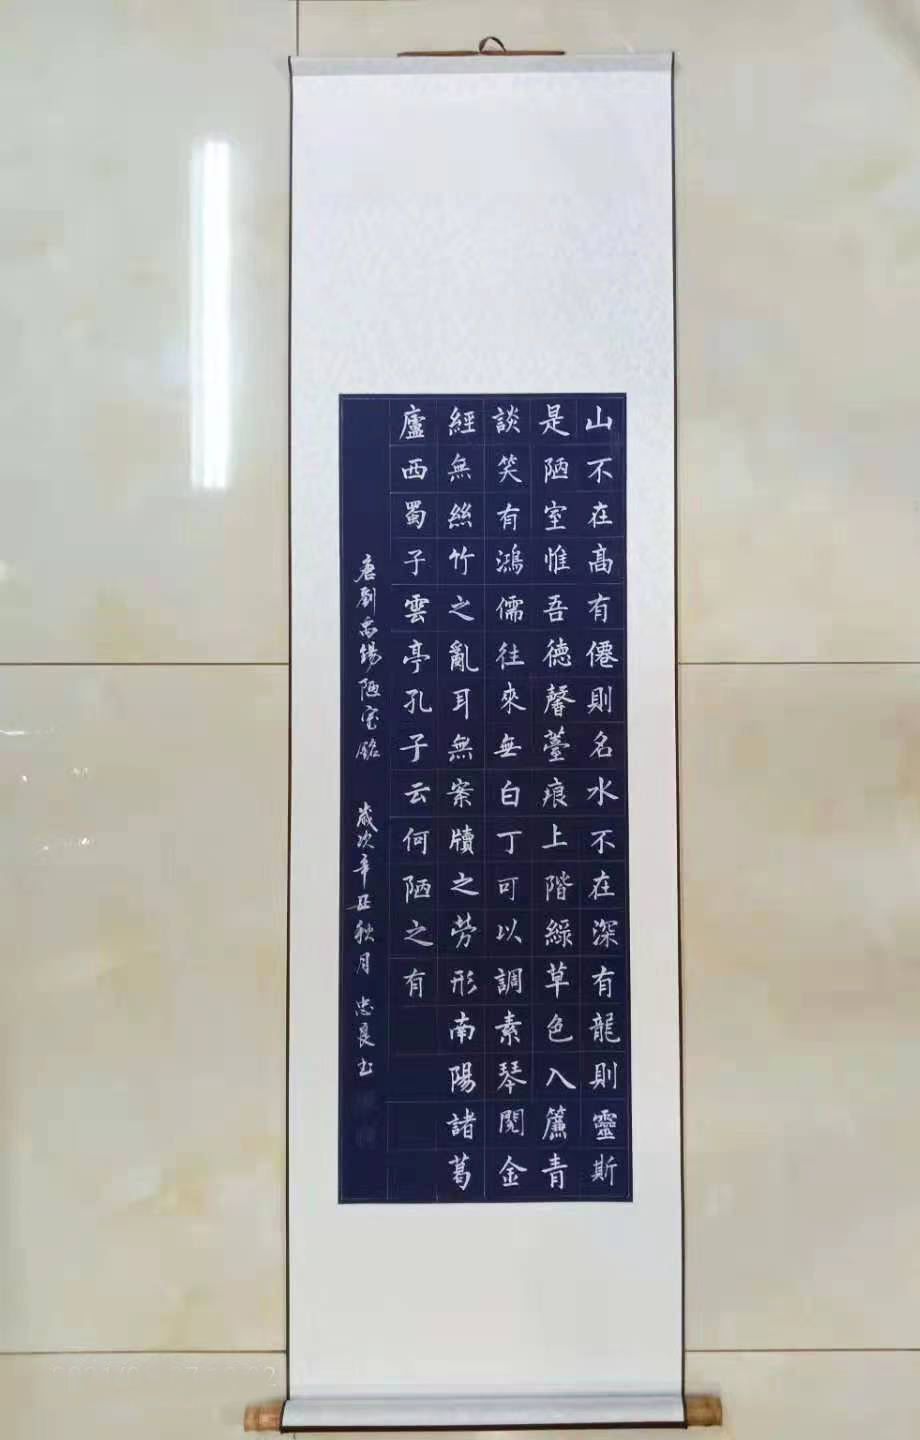 山不在高有僊則名水不在深有龍則靈斯
是陋室惟吾德馨薹痕上階綠草色入簾青
談笑有鴻儒往來無白丁可以調素琴閱金
經無絲竹之亂耳無案牘之勞形南陽諸葛
廬西蜀子雲亭孔子云何陋之有
唐劉禹錫陋室銘 歲次辛丑秋月 忠良书